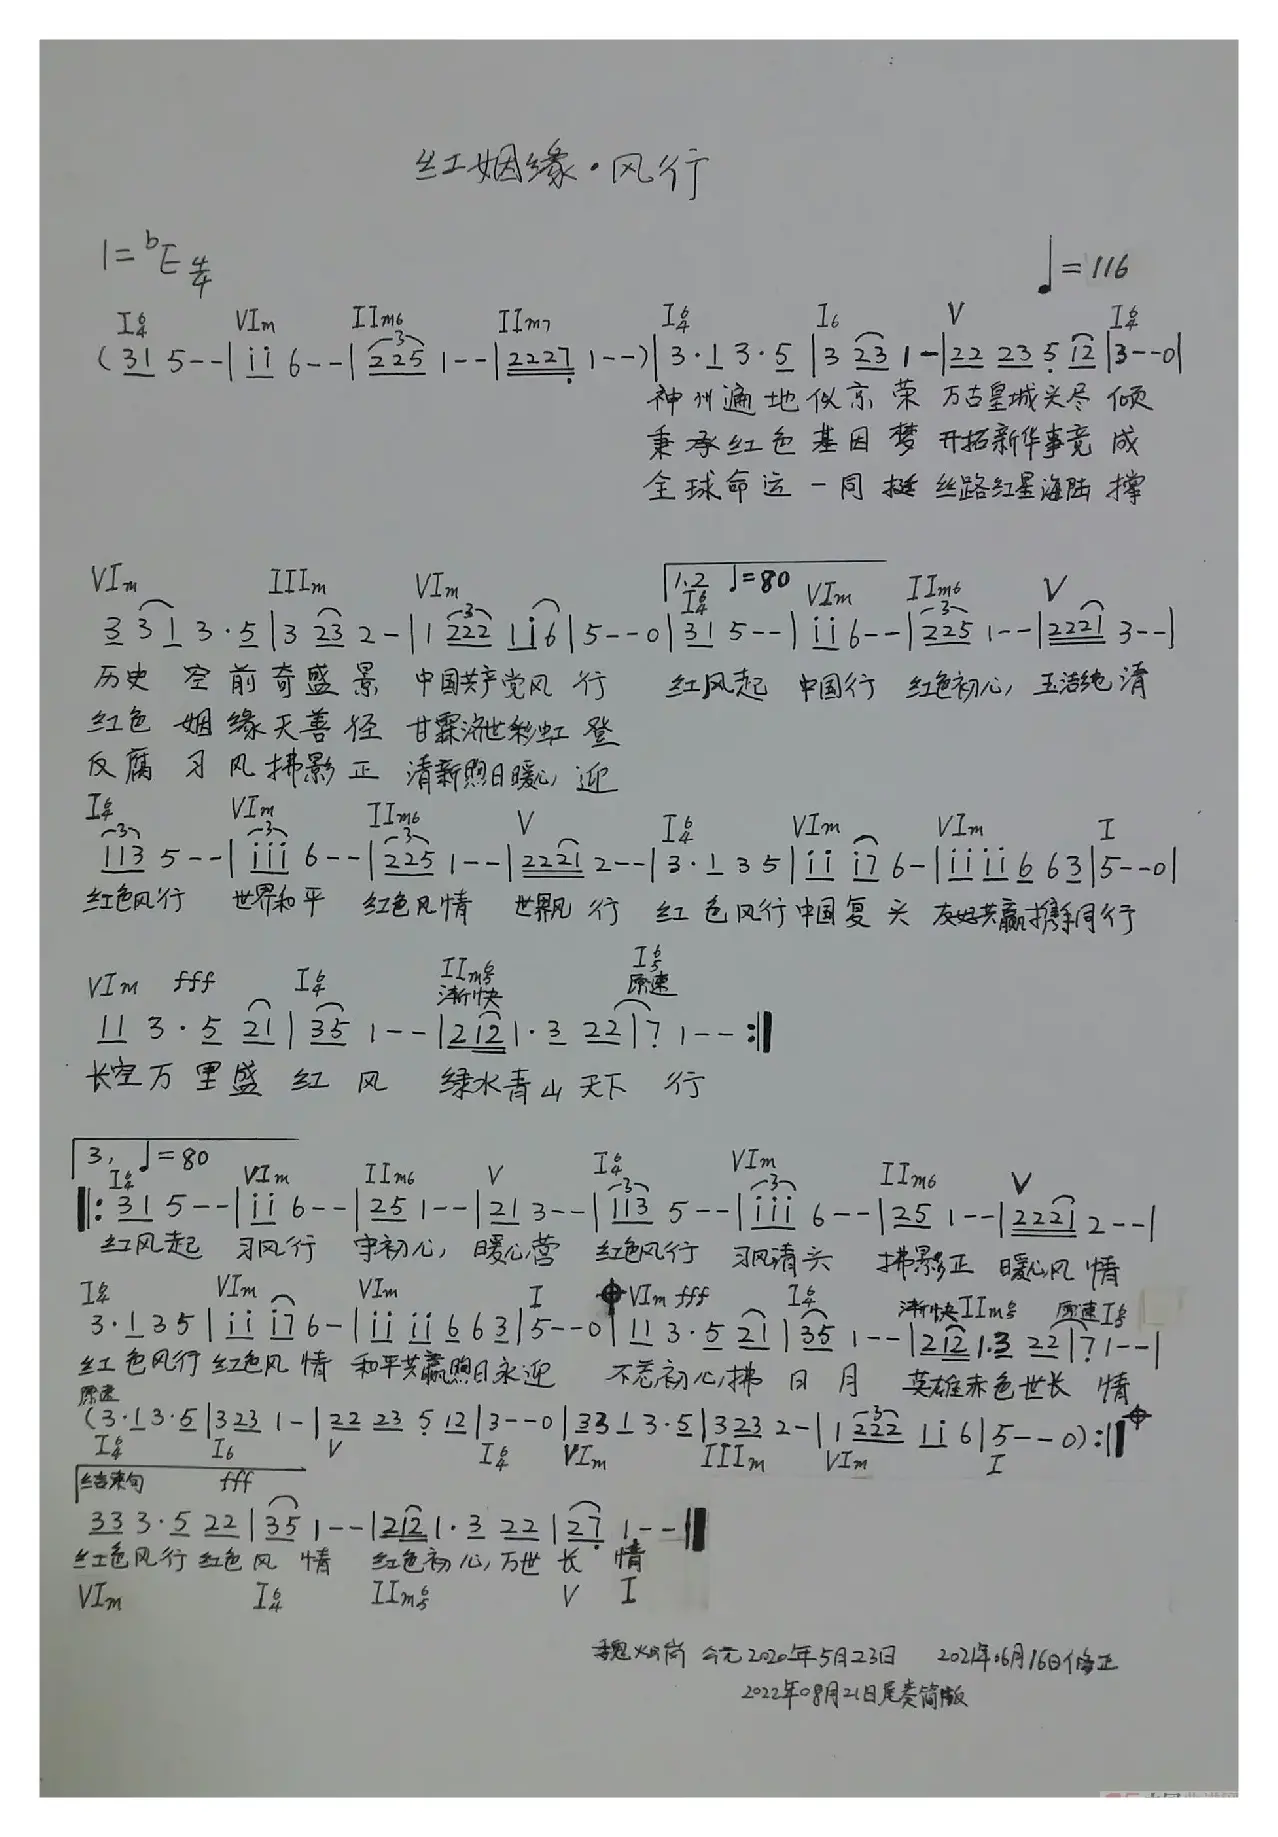 红姻缘·风行
1=ᵇE 4/4 ♩=116
I6/4 VIm IIm6 IIm7 I6/4 I6 V I6/4
(31 5--|ii 6--|225 1--|2227 1--)|3·1 3·5|3 23 1-|22 23 5 12|3--0|
神州遍地似京荣 万古皇城头尽倾
秉承红色基因梦 开拓新华事竟成
全球命运一同挺 丝路红星海陆撑
VIm IIIm VIm 1.2 ♩=80 I6/4 VIm IIm6 V
3 3 1 3·5|3 23 2-|1 222 1i6|5--0|31 5--|ii 6--|225 1--|2221 3--|
历史空前奇盛景 中国共产党风行 红风起 中国行 红色初心,玉洁纯清
红色姻缘天善径 甘霖济世彩虹登
反腐习风拂影正 清新煦日暖心迎
I6/4 VIm IIm6 V I6/4 VIm VIm I
113 5--|iii 6--|225 1--|2221 2--|3·1 35|ii i7 6-|ii ii 6 63|5--0|
红色风行 世界和平 红色风情 世界风行 红色风行中国复头 友好共赢携手同行
VIm fff I6/4 IIm6/5 渐快 I6/5 原速
11 3·5 21|35 1--|212 1·3 22|7 1--:‖
长空万里盛红风 绿水青山天下行
3, ♩=80
I6/4 VIm IIm6 V I6/4 VIm IIm6 V
‖:31 5--|ii 6--|25 1--|21 3--|113 5--|iii 6--|25 1--|2221 2--|
红风起 习风行 守初心,暖心营 红色风行 习风清头 拂影正 暖心风情
I6/4 VIm VIm I VIm fff I6/4 渐快 IIm6/5 原速 I6/5
3·1 35|ii i7 6-|ii ii 6 63|5--0|11 3·5 21|35 1--|212 1.3 22|7 1--|
红色风行 红色风情 和平共赢煦日永迎 不忘初心,拂日月 英雄赤色世长情
原速
(3·1 3·5|323 1-|22 23 5 12|3--0|33 1 3·5|323 2-|1 222 1i 6|5--0):‖
I6/4 I6 V I6/4 VIm IIIm VIm I
结束句 fff
33 3·5 22|35 1--|212 1·3 22|27 1--‖
红色风行红色风情 红色初心,万世长情
VIm I6/4 IIm6/5 V I
公元2020年5月23日 2021年06月16日修正
2022年08月21日尾奏简版